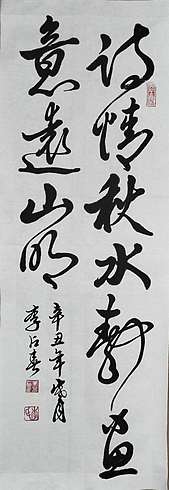 诗情秋水静画
意远山明
辛丑年月
李占春